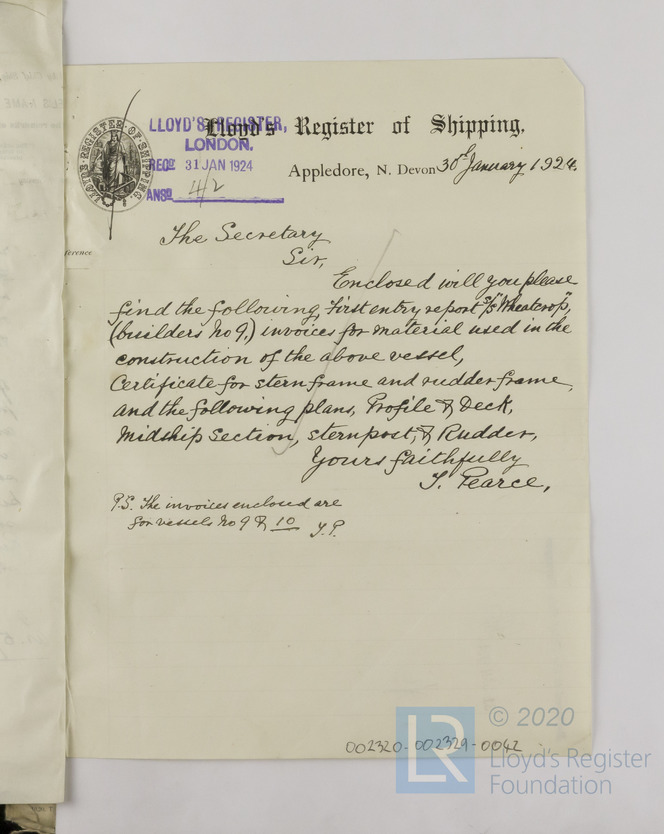 LLOYD'S REGISTER OF SHIPPING.
LLOYD'S REGISTER,
LONDON.
REC⁠D 31 JAN 1924
ANS⁠D 4/2
Lloyd's Register of Shipping.
Appledore, N. Devon 30th January 1924.
ference
The Secretary
Sir,
Enclosed will you please
find the following, First entry report S/S "Wheatcrop",
(builders No 9.) invoices for material used in the
construction of the above vessel,
Certificate for stern frame and rudder frame,
and the following plans, Profile & Deck,
Midship Section, sternpost, & Rudder,
Yours faithfully
Pearce,
P.S. The invoices enclosed are
for vessels No 9 & 10
002320-002329-0042
LR
© 2020
Lloyd's Register
Foundation